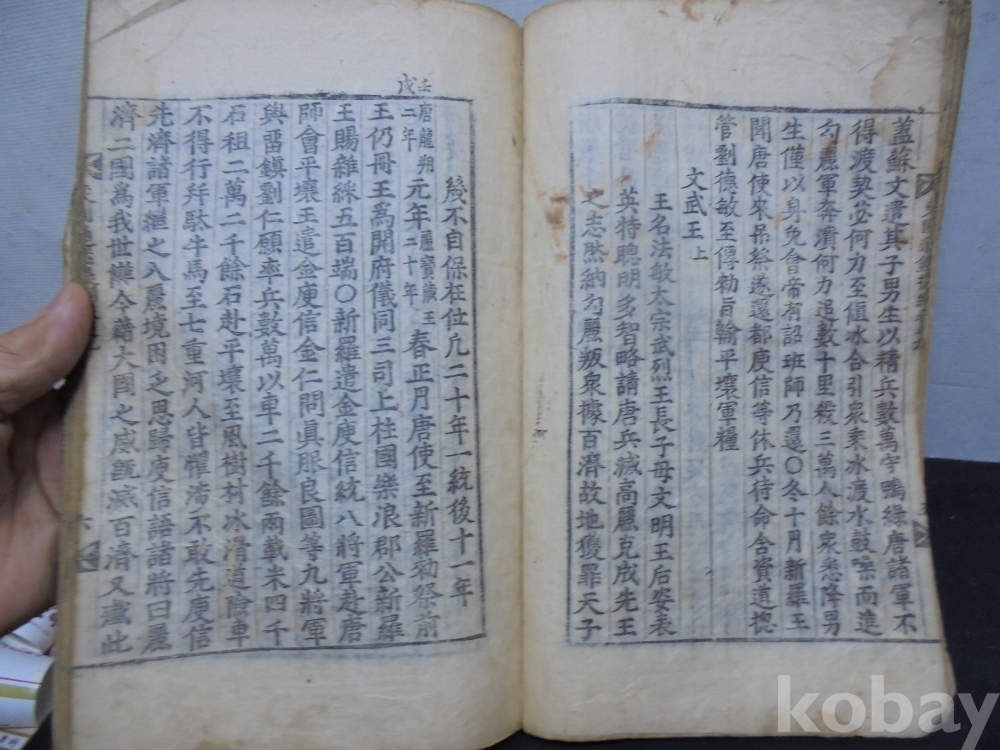 蓋蘇文遣其子男生以精兵數萬守鴨綠唐諸軍不
得渡契苾何力至値冰合引衆乘冰渡水鼓噪而進
勾麗軍奔潰何力追數十里殺三萬人餘衆悉降男
生僅以身免會帝有詔班師乃還〇冬十月新羅王
聞唐使來吊祭遂還都庾信等休兵待命含資道摠
管劉德敏至傳勅旨輸平壤軍糧
文武王上
王名法敏太宗武烈王長子母文明王后姿表
英特聰明多智略請唐兵滅高麗克成先王
之志然納勾麗叛衆據百濟故地獲罪天子
幾不自保在位凡二十年一統後十一年
壬戌
唐龍朔二年
元年
麗寶藏王二十年
春正月唐使至新羅勑祭前
王仍冊王爲開府儀同三司上柱國樂浪郡公新羅
王賜雜綵五百端〇新羅遣金庾信統八將軍赴唐
師會平壤王遣金庾信金仁問眞服良圖等九將軍
與留鎭劉仁願率兵數萬以車二千餘兩載米四千
石租二萬二千餘石赴平壤至風樹村冰滑道險車
不得行幷駄牛馬至七重河人皆懼涉不敢先庾信
先濟諸軍繼之入麗境困乏思歸庾信語諸將曰麗
濟二國爲我世讎今藉大國之威旣滅百濟又盪此
kobay